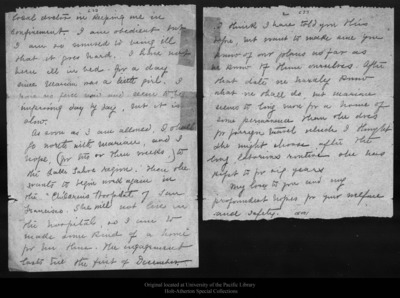 local doctor in keeping me in
confinement. I am obedient but
I am so unused to being ill
that it goes hard. I have not
been ill in bed for a day
since Marian was a little girl. I
have no fever now and seem to be
improving day by day, but it is
slow.
As soon as I am allowed, I
go north with Marian, and I
hope, (for two or three weeks) to
the Lake Tahoe region. Then she
wants to begin work again in
the "Children's Hospital" of San
Francisco. She will not live in
the hospital, so I am to
make some kind of a home
for her there. Her engagement
lasts till the first of December
I think I have told you this
before, but want to make sure you
know of our plans so far as
we know of them ourselves. After
that date we hardly know
what we shall do, but Marian
seems to long more for a home of
some permanence than she does
for foreign travel which I thought
she might choose after the
long laborious routine she has
kept to for six years.
My love to you and my
profoundest hopes for your welfare
and safety.
Original located at University of the Pacific Library
Holt-Atherton Special Collections